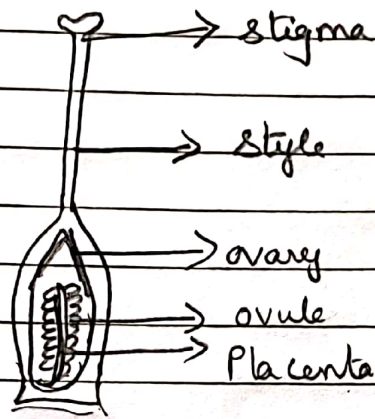 stigma
style
ovary
ovule
Placenta